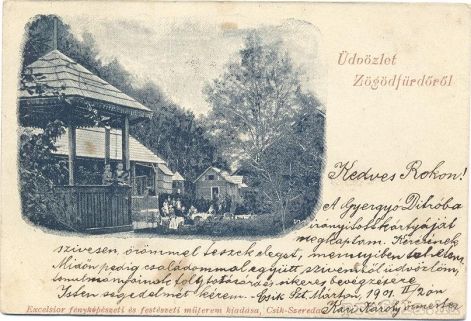 Üdvözlet
Zögödfürdőről
Kedves Rokon!
A Gyergyó Ditróba
irányitott kártyáját
megkaptam. Kérésének
szivesen, örömmel teszek eleget, mennyiben
Midőn pedig családommal együtt szivemből üdvözlöm,
folytatására s sikeres bevégzésére
Isten segedelmét kérem. Csik Szt. Márton, 1901. II/2án
Excelsior fényképészeti és festészeti műterem kiadása, Csik-Szereda
Károly